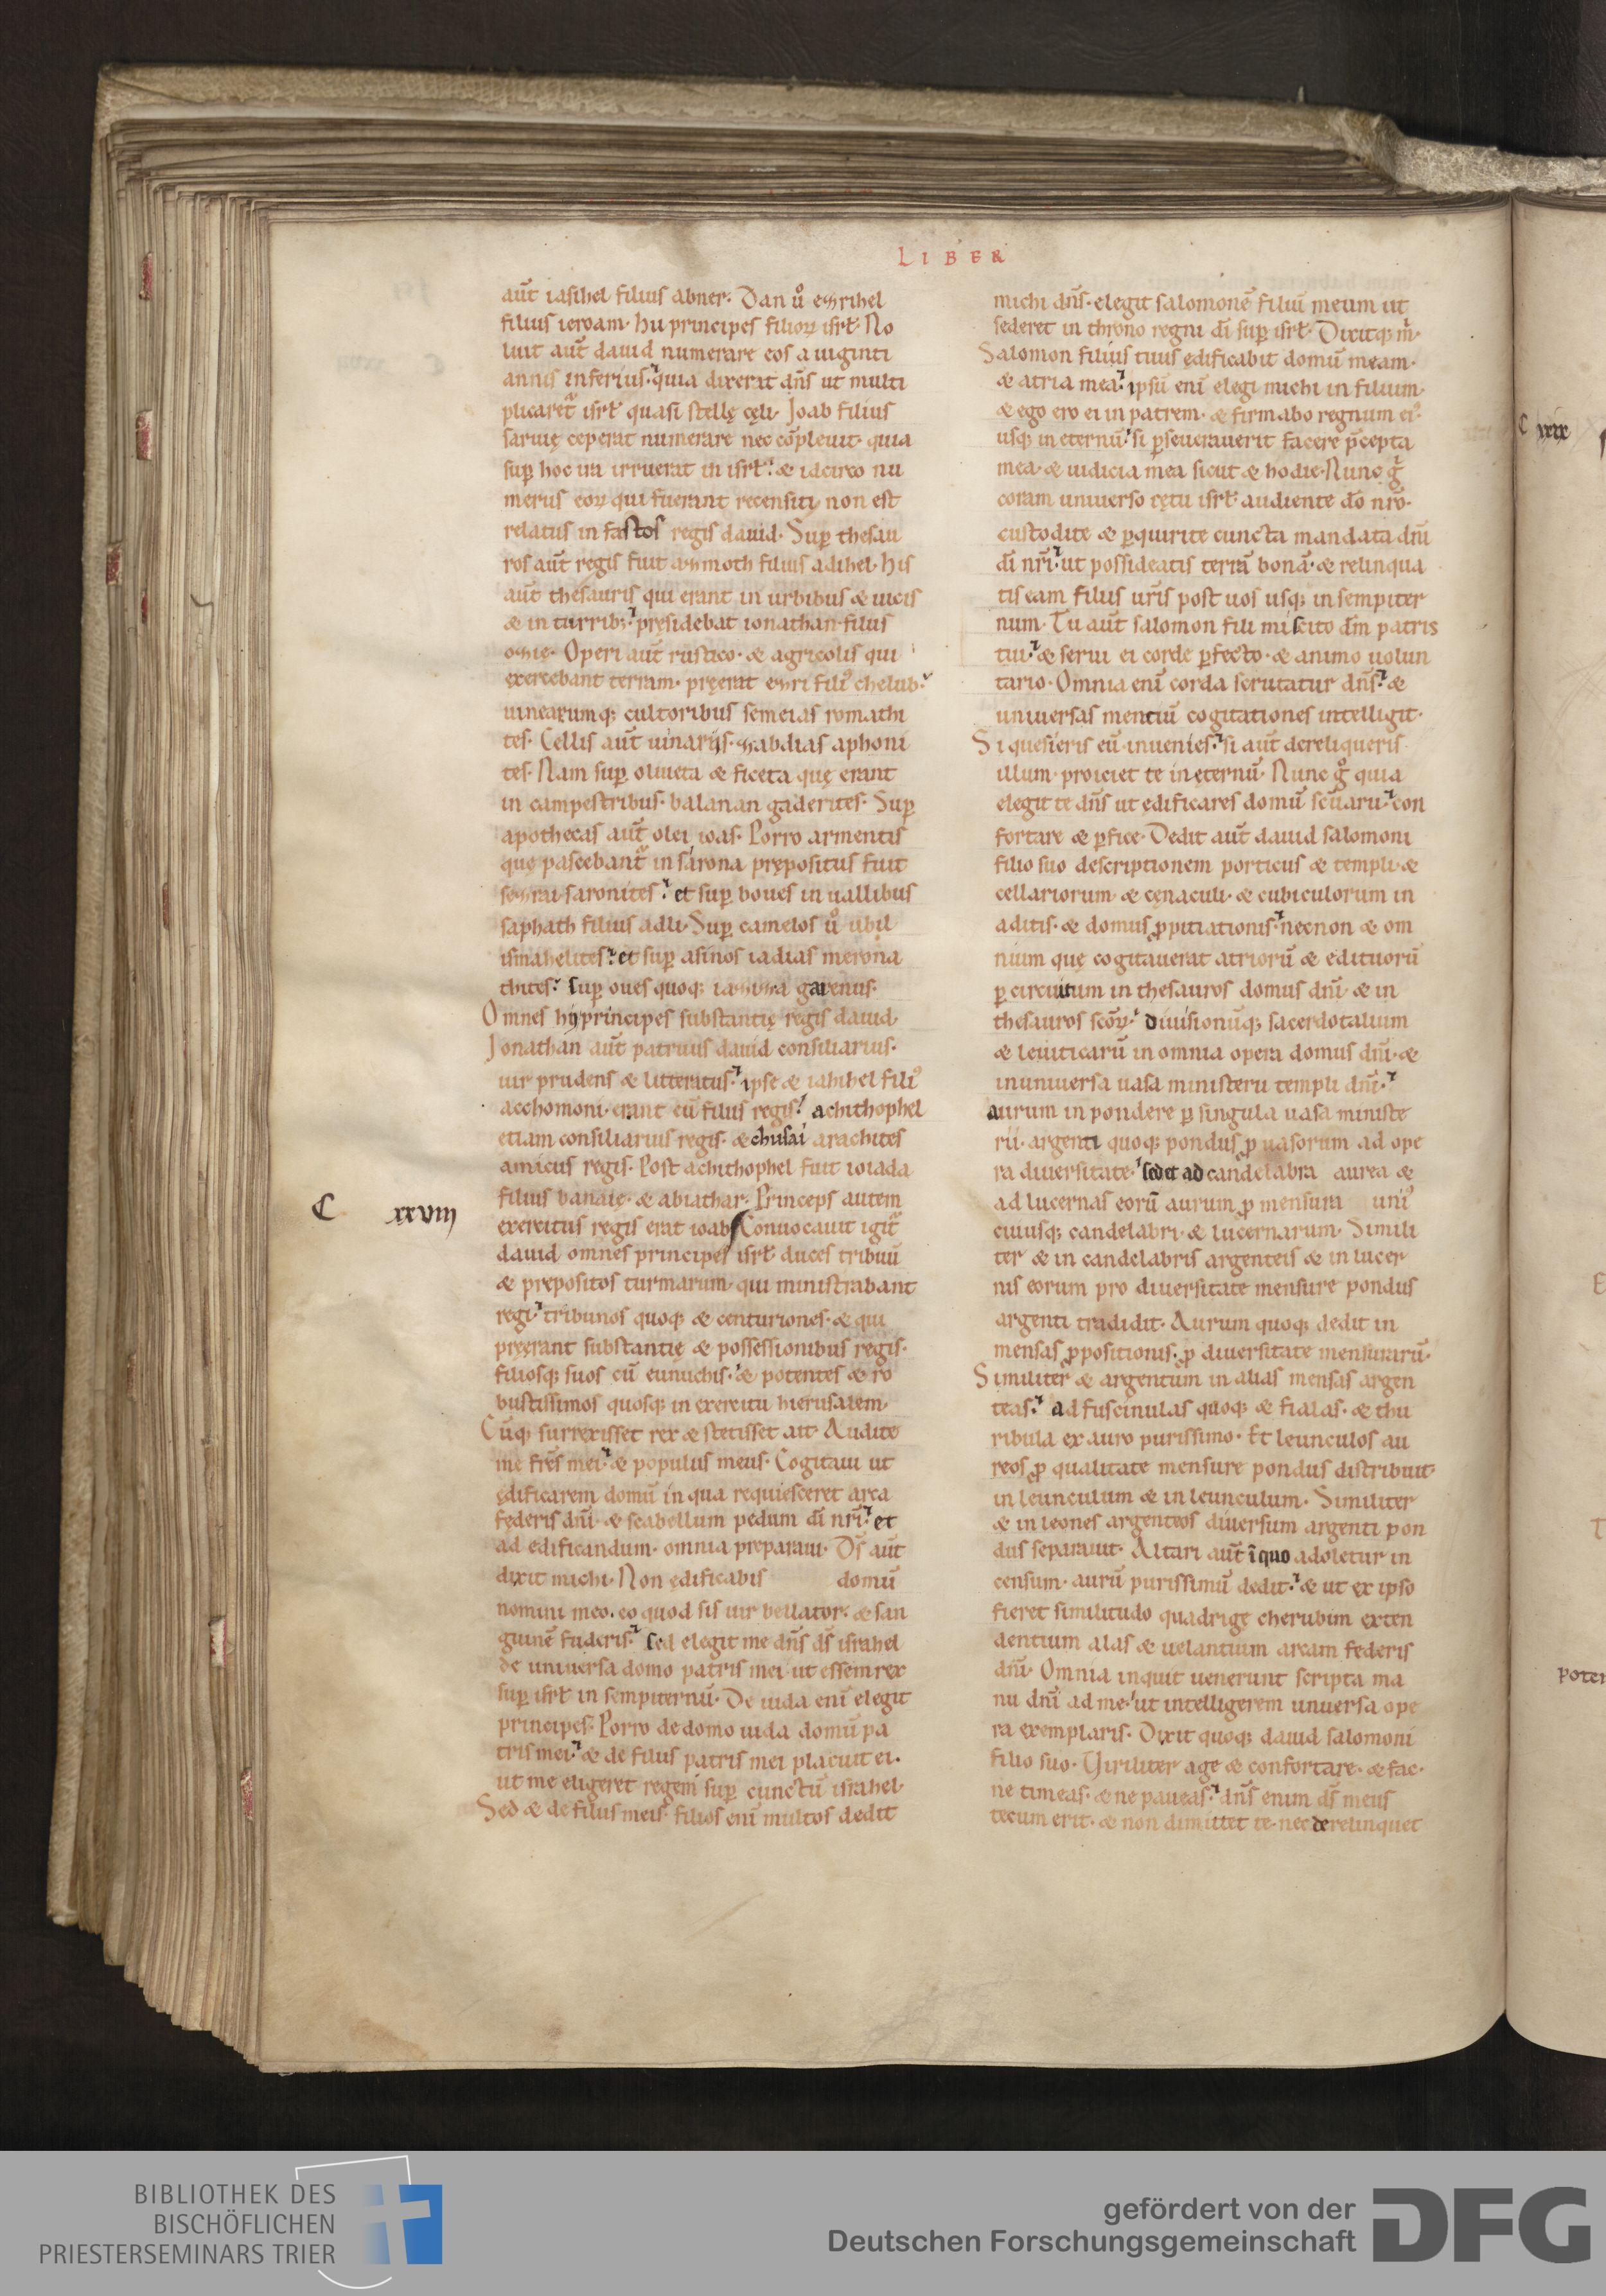 LIBER
aut̄ iasihel filius abner. Dan ů ezrihel
filius ieroam. hii principes filioꝝ isrł. No
luit aut̄ dauid numerare eos a uiginti
annis inferius. quia dixerat dn̄s ut multi
plicaret᷑ isrł quasi stellę cęli. Ioab filius
saruię ceperat numerare nec cōpleuit. quia
suꝑ hoc ira irruerat in isrł. & idcirco nu
merus eoꝝ qui fuerant recensiti non est
relatus in fastos regis dauid. Suꝑ thesau
ros aut̄ regis fuit azmoth filius adihel. His
aut̄ thesauris qui erant in urbibus & uicis
& in turribꝫ. pręsidebat ionathan filius
ozię. Operi aut̄ rustico. & agricolis qui
exercebant terram. pręerat ezri filiꝰ chelub.
uinearumqꝫ cultoribus semeias romathi
tes. Cellis aut̄ uinariis. zabdias aphoni
tes. Nam suꝑ oliueta & ficeta quę erant
in campestribus. balanan gaderites. Suꝑ
apothecas aut̄ olei ioas. Porro armentis
quę pascebant᷑ in sarona prępositus fuit
sezrai saronites. et suꝑ boues in uallibus
saphath filius adli. Suꝑ camelos ů ubil
ismahelites. et suꝑ asinos iadias merona
thites. suꝑ oues quoqꝫ iaziza garenus.
Omnes hii principes substantię regis dauid.
Ionathan aut̄ patruus dauid consiliarius.
uir prudens & litteratus. ipse & iahihel filiꝰ
acchomoni. erant cū filiis regis. achithophel
etiam consiliarius regis. & chusai arachites
amicus regis. Post achithophel fuit ioiada
filius banaię. & abiathar. Princeps autem
C xxviij
exercitus regis erat ioab. Conuocauit igit᷑
dauid omnes principes isrł duces tribuū
& prepositos turmarum. qui ministrabant
regi. tribunos quoqꝫ & centuriones. & qui
pręerant substantię & possessionibus regis.
filiosqꝫ suos cū eunuchis. & potentes & ro
bustissimos quosqꝫ in exercitu hierusalem.
Cūqꝫ surrexisset rex & stetisset ait. Audite
me fr̄es mei. & populus meus. Cogitaui ut
ędificarem domū in qua requiesceret arca
fęderis dn̄i. & scabellum pedum dī nr̄i. et
ad edificandum. omnia preparaui. Ds̄ aut̄
dixit michi. Non ędificabis domū
nomini meo. eo quod sis uir bellator. & san
guinē fuderis. sed elegit me dn̄s ds̄ israhel
de uniuersa domo patris mei ut essem rex
suꝑ isrł in sempiternū. De iuda enī elegit
principes. Porro de domo iuda domū pa
tris mei. & de filiis patris mei placuit ei.
ut me eligeret regem suꝑ cunctū israhel.
Sed & de filiis meis. filios enī multos dedit
michi dn̄s. elegit salomonē filiū meum ut
sederet in throno regni dī suꝑ isrł. Dixitqꝫ m̍.
Salomon filius tuus ędificabit domū meam.
& atria mea. ipsū enī elegi michi in filium.
& ego ero ei in patrem. & firmabo regnum eiꝰ
usqꝫ in eternū. si ꝑseuerauerit facere p̄cepta
mea. & iudicia mea sicut & hodie. Nunc g̊
coram uniuerso cętu isrł audiente dō nr̄o.
custodite & ꝑquirite cuncta mandata dn̄i
dī nr̄i. ut possideatis terrā bonā. & relinqua
tis eam filiis ur̄is post uos usqꝫ in sempiter
num. Tu aut̄ salomon fili mi scito dm̄ patris
tui. & serui ei corde ꝑfecto. & animo uolun
tario. Omnia enī corda scrutatur dn̄s. &
uniuersas mentiū cogitationes intelligit.
Si quesieris eū. inuenies. si aut̄ dereliqueris
illum. proiciet te in ęternū. Nunc g̊ quia
elegit te dn̄s ut edificares domū sc̄uarii. con
fortare & ꝑfice. Dedit aut̄ dauid salomoni
filio suo descriptionem porticus & templi. &
cellariorum. & cęnaculi. & cubiculorum in
aditis. & domus ꝓpitiationis. necnon & om
nium quę cogitauerat atriorū & edituorū
ꝑ circuitum in thesauros domus dn̄i. & in
thesauros sc̄oꝝ. diuisionūqꝫ sacerdotalium
& leuiticarū in omnia opera domus dn̄i. &
in uniuersa uasa ministerii templi dn̄i.
aurum in pondere ꝑ singula uasa ministe
rii. argenti quoqꝫ pondus ꝓ uasorum ad ope
ra diuersitate. sed et ad candelabra aurea &
ad lucernas eorū aurum ꝓ mensura uniꝰ
cuiusqꝫ candelabri. & lucernarum. Simili
ter & in candelabris argenteis & in lucer
nis eorum pro diuersitate mensure pondus
argenti tradidit. Aurum quoqꝫ dedit in
mensas ꝓpositionis. ꝓ diuersitate mensurarū.
Similiter & argentum in alias mensas argen
teas. ad fuscinulas quoqꝫ & fialas. & thu
ribula ex auro purissimo. Et leunculos au
reos ꝓ qualitate mensure pondus distribuit
in leunculum & in leunculum. Similiter
& in leones argenteos diuersum argenti pon
dus separauit. Altari aut̄ ī quo adoletur in
censum. aurū purissimū dedit. & ut ex ipso
fieret similitudo quadrigę cherubim exten
dentium alas & uelantium arcam federis
dn̄i. Omnia inquit uenerunt scripta ma
nu dn̄i ad me. ut intelligerem uniuersa ope
ra exemplaris. Dixit quoqꝫ dauid salomoni
filio suo. Uiriliter age & confortare. & fac.
ne timeas. & ne paueas. dn̄s enim ds̄ meus
tecum erit. & non dimittet te. nec derelinquet
C xxix
BIBLIOTHEK DES
BISCHÖFLICHEN
PRIESTERSEMINARS TRIER
gefördert von der
Deutschen Forschungsgemeinschaft
DFG